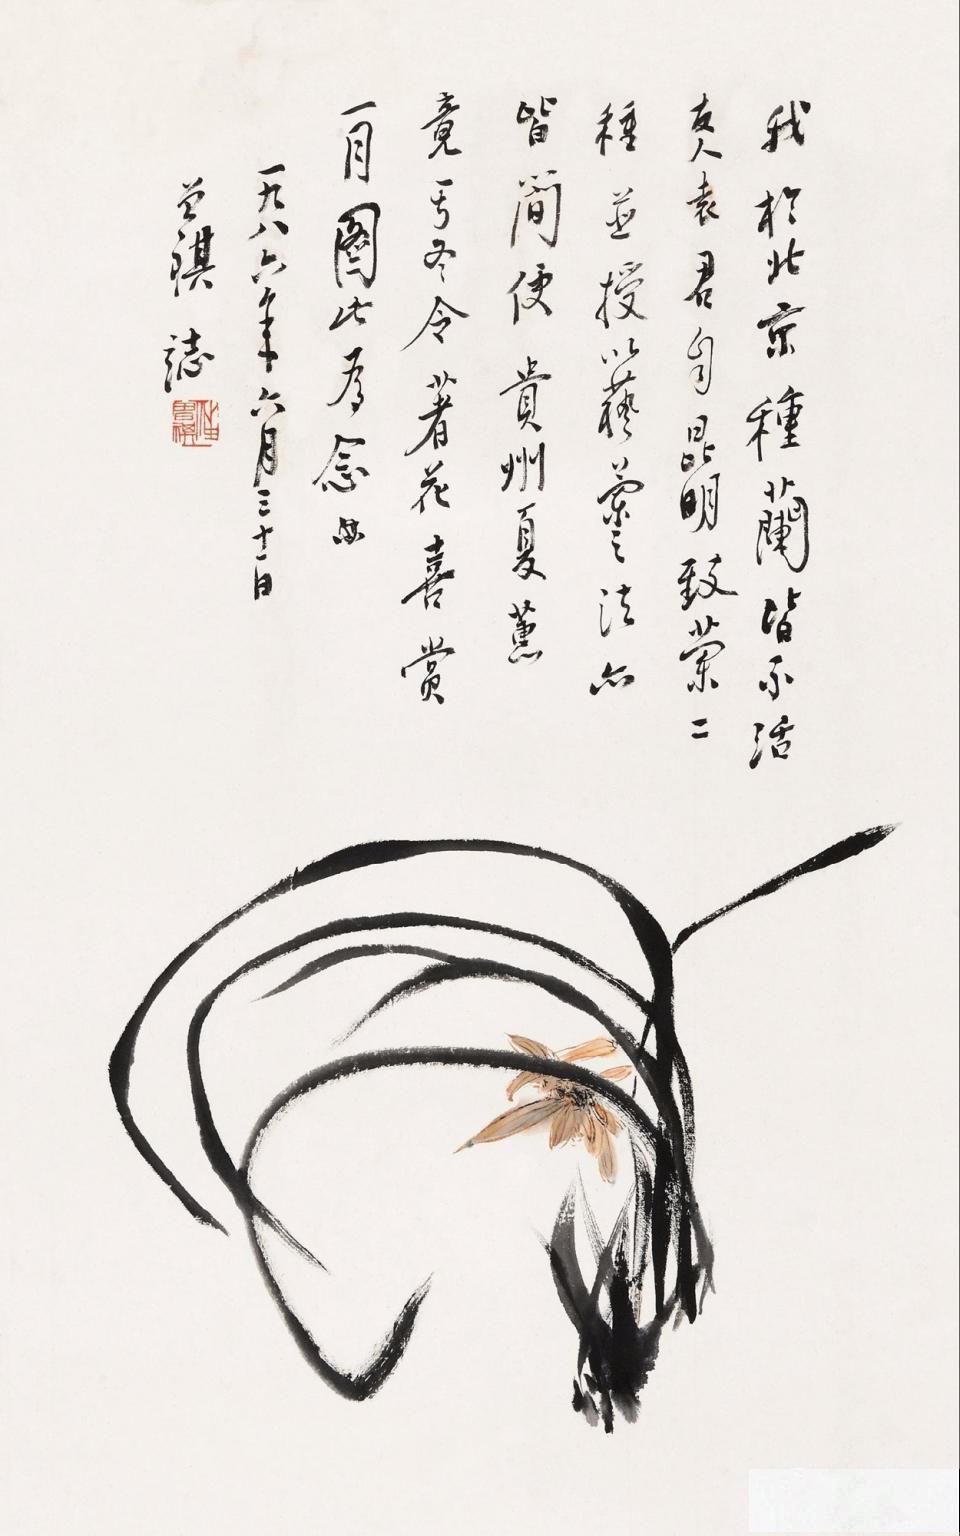 我於北京種蘭皆不活
友人袁君自昆明致蘭二
種並授以藝蘭之法亦
皆簡便貴州夏蕙
竟于冬令著花喜賞
一月圖此為念
一九八六年六月三十一日
曾祺誌
汪曾祺